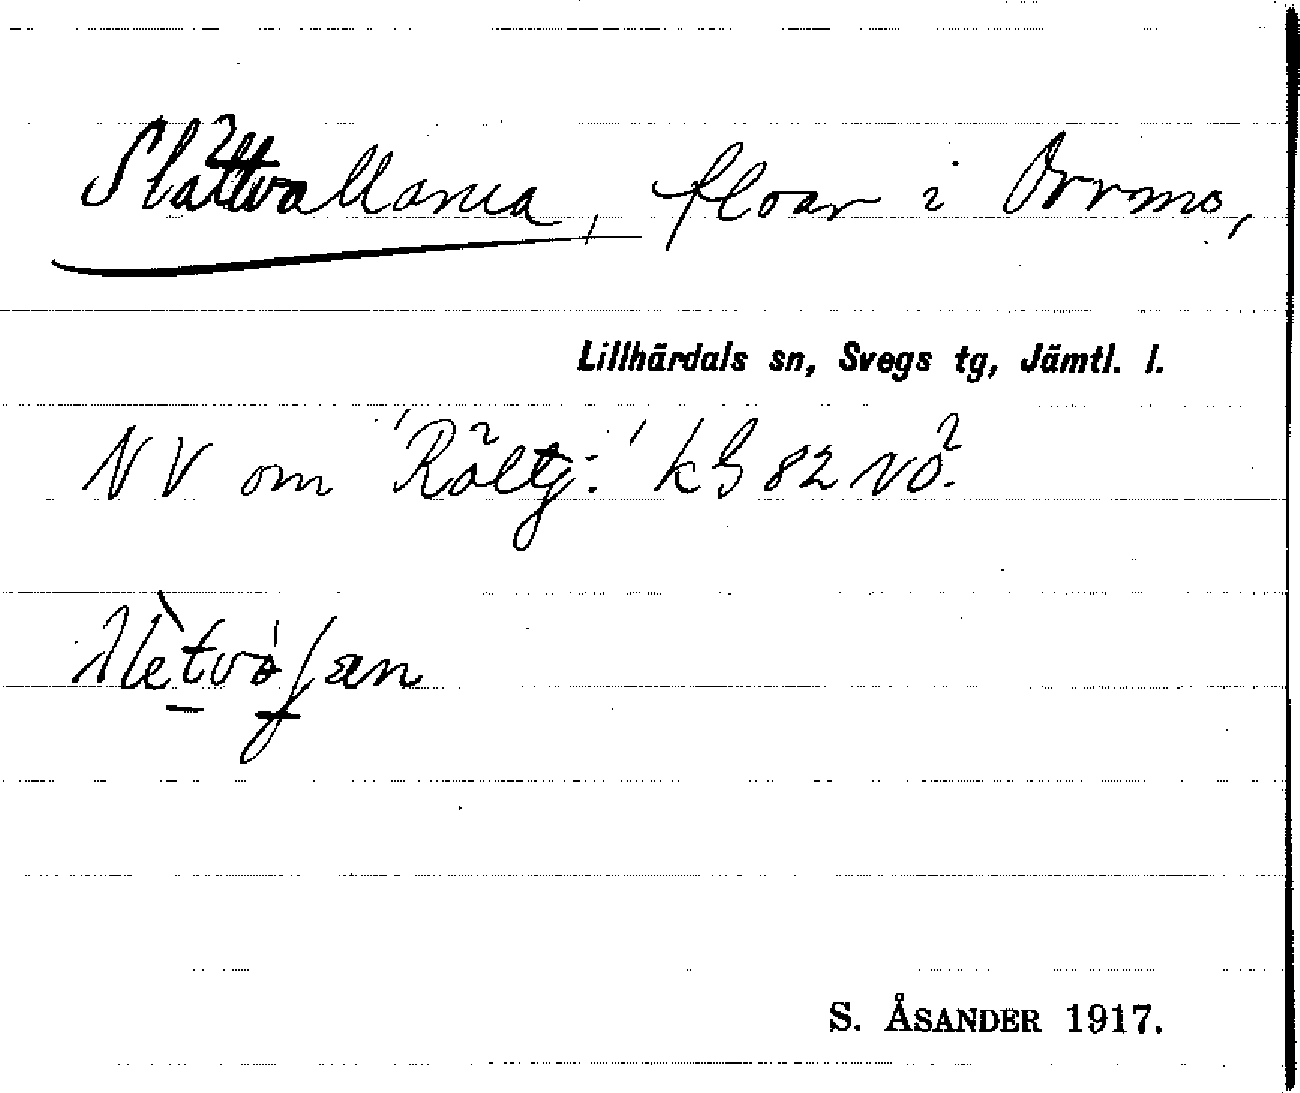 Slåttvallarna, floar i Orrmo,
Lillhärdals sn, Svegs tg, Jämtl. l.
NV om 'Rältj:' kb 82 nö.
S. ÅSANDER 1917.